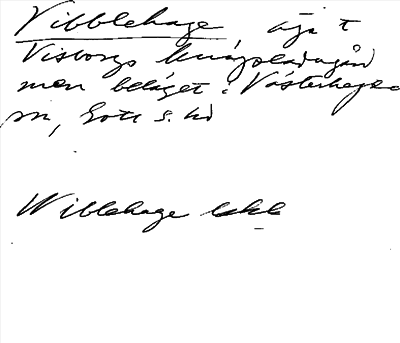 Vibblehage, äga t
Visborgs kungsladugård
men beläget i Västerhejde
sn, Gotl s. hd
Wibblehage